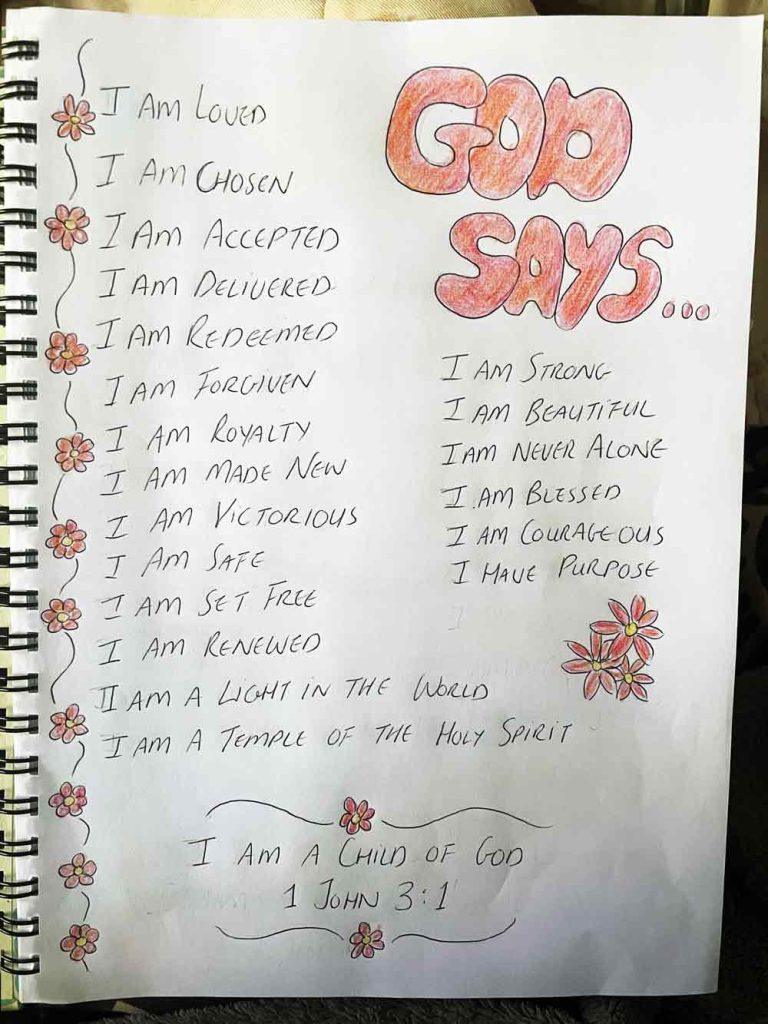 GOD
SAYS...
I AM LOVED
I AM CHOSEN
I AM ACCEPTED
I AM DELIVERED
I AM REDEEMED
I AM FORGIVEN
I AM ROYALTY
I AM MADE NEW
I AM VICTORIOUS
I AM SAFE
I AM SET FREE
I AM RENEWED
I AM A LIGHT IN THE WORLD
I AM A TEMPLE OF THE HOLY SPIRIT
I AM STRONG
I AM BEAUTIFUL
I AM NEVER ALONE
I AM BLESSED
I AM COURAGEOUS
I HAVE PURPOSE
I AM A CHILD OF GOD
1 JOHN 3:1